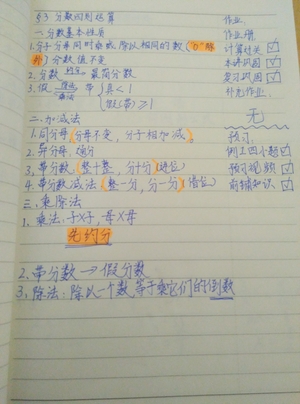 §3 分数四则运算
一.分数基本性质
1.分子分母同时乘或除以相同的数("0"除
外)分数值不变
2.分数 约分→ 最简分数
3.假 除法→ 乘法← 带 {真<1
假(带)≥1
二.加减法
1.同分母(分母不变,分子相加减)。
2.异分母,通分
3.带分数(整+整,分+分)(进位)
4.带分数减法(整-分,分-分)(借位)
三.乘除法
1.乘法:子×子,母×母
先约分
2.带分数→假分数
3.除法:除以一个数,等于乘它们的倒数
作业.
作业册
计算过关 ☑
本讲巩固 ☑
复习巩固 ☑
补充作业.
无
预习.
例1四个题☑
预习视频 ☑
前铺知识 ☑